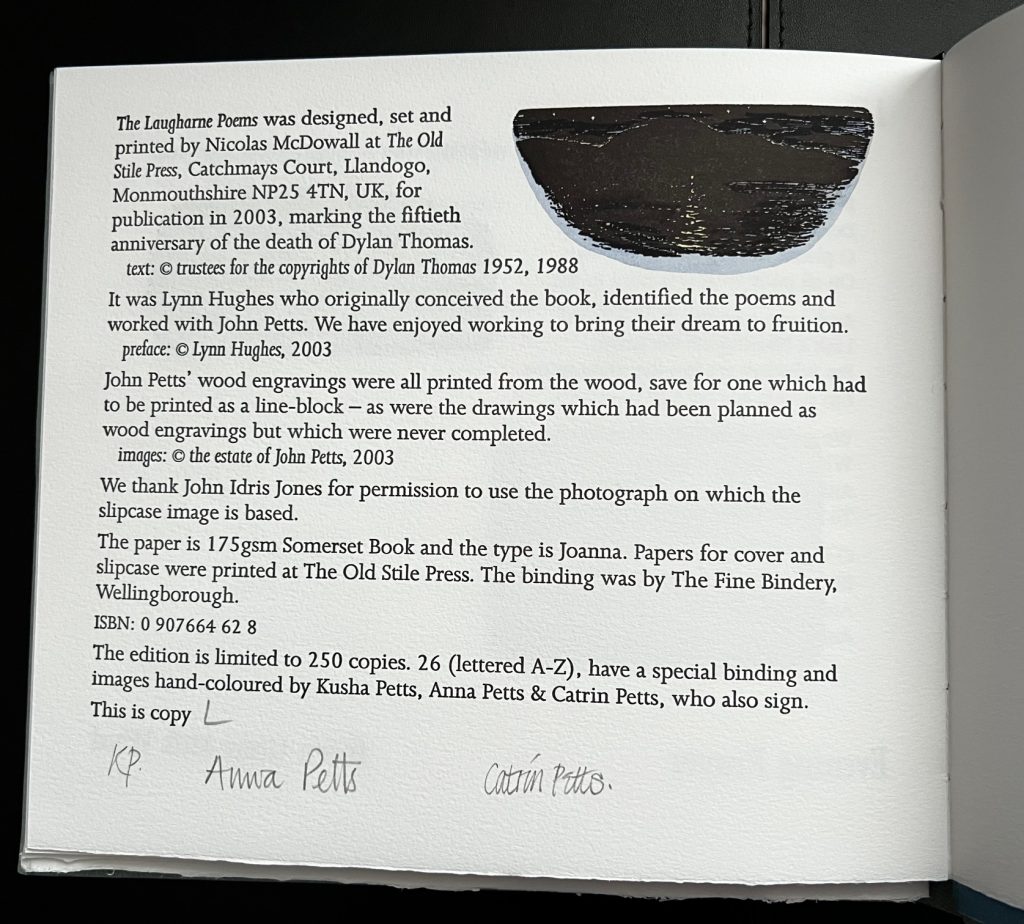 The Laugharne Poems was designed, set and
printed by Nicolas McDowall at The Old
Stile Press, Catchmays Court, Llandogo,
Monmouthshire NP25 4TN, UK, for
publication in 2003, marking the fiftieth
anniversary of the death of Dylan Thomas.
text: © trustees for the copyrights of Dylan Thomas 1952, 1988
It was Lynn Hughes who originally conceived the book, identified the poems and
worked with John Petts. We have enjoyed working to bring their dream to fruition.
preface: © Lynn Hughes, 2003
John Petts’ wood engravings were all printed from the wood, save for one which had
to be printed as a line-block – as were the drawings which had been planned as
wood engravings but which were never completed.
images: © the estate of John Petts, 2003
We thank John Idris Jones for permission to use the photograph on which the
slipcase image is based.
The paper is 175gsm Somerset Book and the type is Joanna. Papers for cover and
slipcase were printed at The Old Stile Press. The binding was by The Fine Bindery,
Wellingborough.
ISBN: 0 907664 62 8
The edition is limited to 250 copies. 26 (lettered A-Z), have a special binding and
images hand-coloured by Kusha Petts, Anna Petts & Catrin Petts, who also sign.
This is copy L
KP. Anna Petts Catrín Petts.